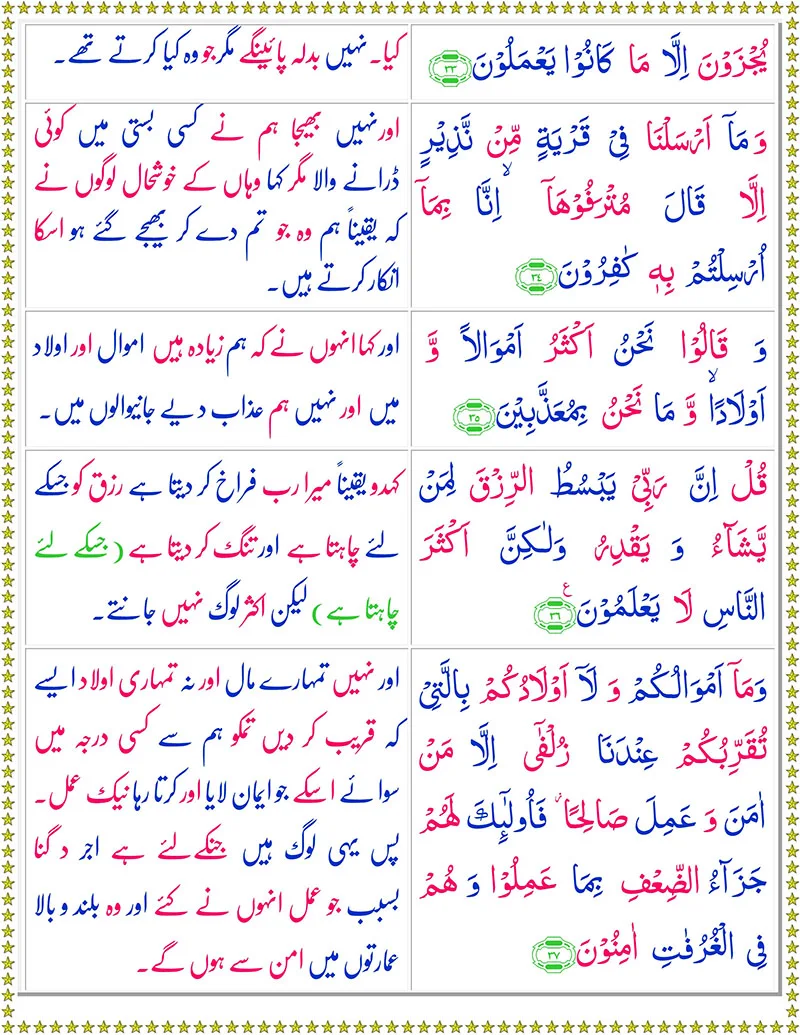 يُجْزَوْنَ اِلَّا مَا كَانُوْا يَعْمَلُوْنَ ٣٣
کیا۔ نہیں بدلہ پائینگے مگر جو وہ کیا کرتے تھے۔
وَ مَاۤ اَرْسَلْنَا فِیْ قَرْیَةٍ مِّنْ نَّذِیْرٍ
اِلَّا قَالَ مُتْرَفُوْهَاۤ ۙ اِنَّا بِمَاۤ
اُرْسِلْتُمْ بِهٖ كٰفِرُوْنَ ٣٤
اور نہیں بھیجا ہم نے کسی بستی میں کوئی
ڈرانے والا مگر کہا وہاں کے خوشحال لوگوں نے
کہ یقیناً ہم وہ جو تم دے کر بھیجے گئے ہو اسکا
انکار کرتے ہیں۔
وَ قَالُوْا نَحْنُ اَكْثَرُ اَمْوَالًا وَّ
اَوْلَادًا ۙ وَّ مَا نَحْنُ بِمُعَذَّبِیْنَ ٣٥
اور کہا انہوں نے کہ ہم زیادہ ہیں اموال اور اولاد
میں اور نہیں ہم عذاب دیے جانیوالوں میں۔
قُلْ اِنَّ رَبِّیْ یَبْسُطُ الرِّزْقَ لِمَنْ
یَّشَآءُ وَ یَقْدِرُ وَلٰكِنَّ اَكْثَرَ
النَّاسِ لَا یَعْلَمُوْنَ ٣٦ ع
کہدو یقیناً میرا رب فراخ کر دیتا ہے رزق کو جسکے
لئے چاہتا ہے اور تنگ کر دیتا ہے (جسکے لئے
چاہتا ہے) لیکن اکثر لوگ نہیں جانتے۔
وَمَاۤ اَمْوَالُكُمْ وَ لَاۤ اَوْلَادُكُمْ بِالَّتِیْ
تُقَرِّبُكُمْ عِنْدَنَا زُلْفٰۤی اِلَّا مَنْ
اٰمَنَ وَ عَمِلَ صَالِحًا ؗ فَاُولٰٓىِٕكَ لَهُمْ
جَزَآءُ الضِّعْفِ بِمَا عَمِلُوْا وَ هُمْ
فِی الْغُرُفٰتِ اٰمِنُوْنَ ٣٧
اور نہیں تمہارے مال اور نہ تمہاری اولاد ایسے
کہ قریب کر دیں تمکو ہم سے کسی درجہ میں
سوائے اسکے جو ایمان لایا اور کرتا رہا نیک عمل۔
پس یہی لوگ ہیں جنکے لئے ہے اجر دگنا
بسبب جو عمل انہوں نے کئے اور وہ بلند و بالا
عمارتوں میں امن سے ہوں گے۔